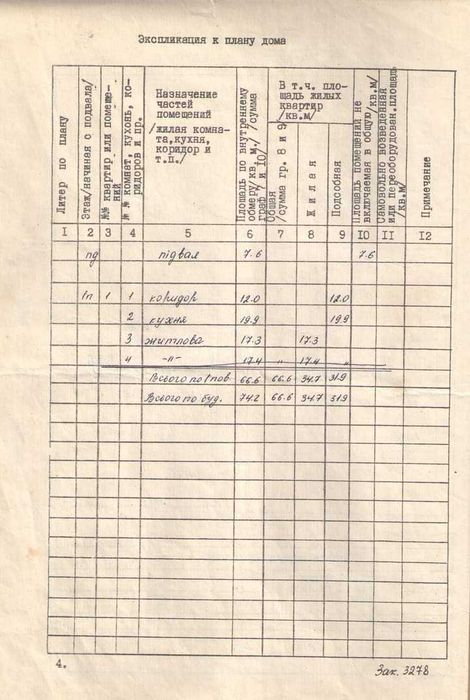 Экспликация к плану дома
Литер по плану
Этаж/начиная с подвала/
№№ квартир или помеще-
ний
№ № комнат, кухонь, ко-
ридоров и пр.
Назначение
частей
помещений
/жилая комна-
та,кухня,
коридор и
т.п./
Площадь по внутреннему
обмеру/кв.м./ /сумма
граф 7 и 10/
В т.ч. пло-
щадь жилых
квартир
/кв.м/
Общая
/сумма гр. 8 и 9/
Жилая
Подсобная
Площадь помещений не
включаемая в общую/кв.м/
Самовольно возведенная
или переоборудован.площадь
/кв.м/
Примечание
1 2 3 4 5 6 7 8 9 10 11 12
пд підвал 7.6 7.6
1п 1 1 коридор 12.0 12.0
2 кухня 19.9 19.9
3 житлова 17.3 17.3
4 -"- 17.4 " 17.4 "
Всього по 1 пов. 66.6 66.6 34.7 31.9
Всього по буд. 74.2 66.6 34.7 31.9
4.
Зак. 3278